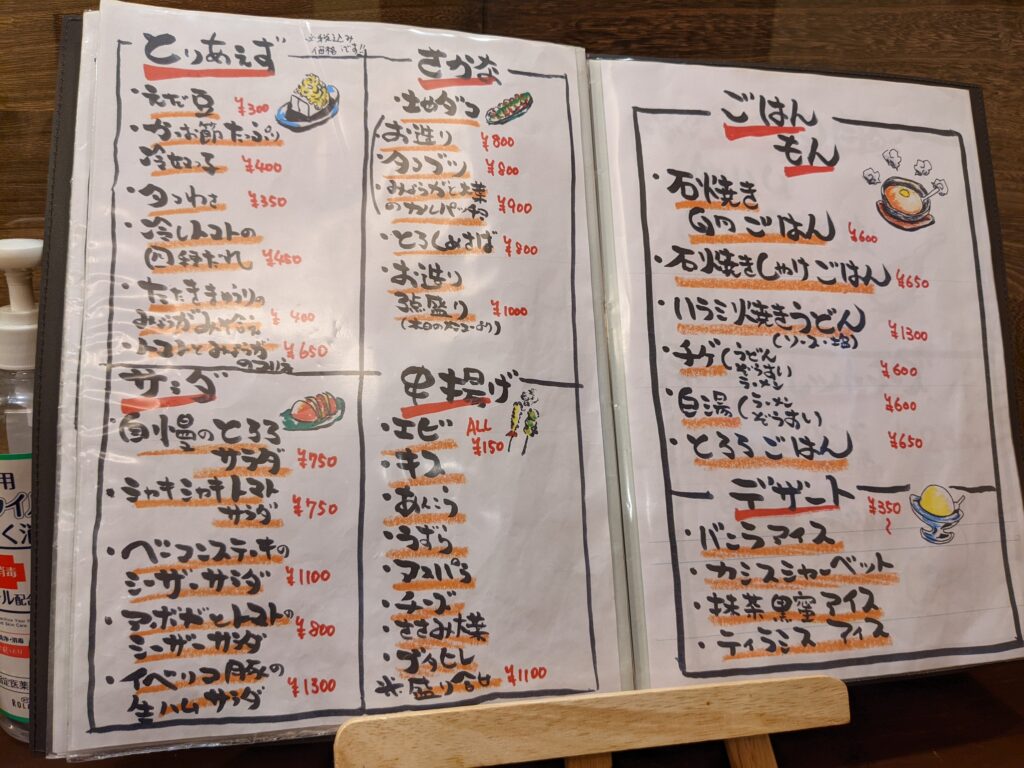 とりあえず
税込み
価格です!!
・えだ豆 ¥300
・かつお節たっぷり
冷奴 ¥400
・タコわさ ¥350
・冷しトマトの
四緑だれ ¥450
・たたききゅうりの
みょうがみそ和え ¥400
¥650
サラダ
・自慢のとろろ
サラダ ¥750
・シャキシャキトマト
サラダ ¥750
・ベーコンステーキの
シーザーサラダ ¥1100
・アボカドとトマトの
シーザーサラダ ¥800
・イベリコ豚の
生ハムサラダ ¥1300
さかな
・地ダコ
お造り ¥800
・タコブツ ¥800
・みょうがと大葉
のカルパッチョ ¥900
・とろしめさば ¥800
・お造り
盛り ¥1000
(本日の
串揚げ
・エビ ALL
¥150
・キス
・あんこう
・うずら
・アスパラ
・チーズ
・ささみ大葉
・ブタヒレ
※盛り合せ ¥1100
ごはん
もん
・石焼き
卵ごはん ¥600
・石焼きしゃけごはん ¥650
・ハラミ焼きうどん ¥1300
(ソース・塩)
・チゲ(うどん
ぞうすい
ラーメン ¥600
・白湯(ラーメン
ぞうすい ¥600
・とろろごはん ¥650
デザート ¥350
〜
・バニラアイス
・カシスシャーベット
・抹茶黒蜜アイス
・ティラミスアイス
用
く
消毒
ル配合